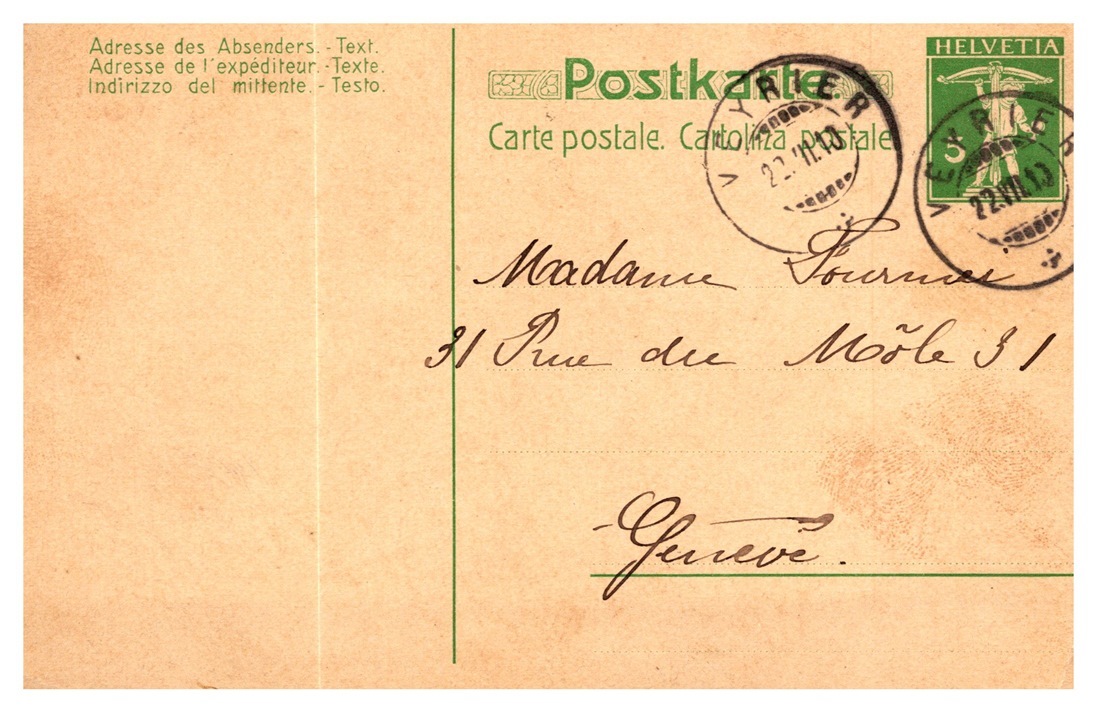 Adresse des Absenders. - Text.
Adresse de l'expéditeur. - Texte.
Indirizzo del mittente. - Testo.
Postkarte
Carte postale. Cartolina postale.
HELVETIA
5
VEYRIER
22.VII.10
VEYRIER
22.VII.10
Madame Fournier
31 Rue du Môle 31
Genève.